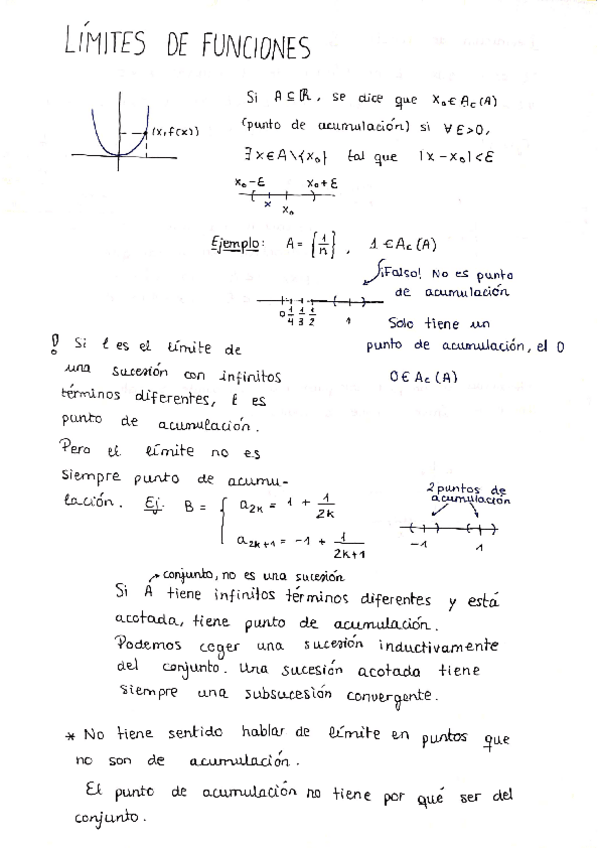 LÍMITES DE FUNCIONES
Si A ⊆ ℝ, se dice que x₀ ∈ Ac(A)
(x, f(x))
(punto de acumulación) si ∀ ε>0,
∃ x ∈ A\{x₀} tal que |x - x₀| < ε
x₀-ε x₀+ε
x x₀
Ejemplo: A = {1/n}, 1 ∈ Ac(A)
¡Falso! No es punto
de acumulación
0 1/4 1/3 1/2 1
Solo tiene un
punto de acumulación, el 0
0 ∈ Ac(A)
! Si l es el límite de
una sucesión con infinitos
términos diferentes, l es
punto de acumulación.
Pero el límite no es
siempre punto de acumu-
lación. Ej. B = { a2k = 1 + 1/2k
a2k+1 = -1 + 1/2k+1
2 puntos de
acumulación
-1 1
conjunto, no es una sucesión
Si A tiene infinitos términos diferentes y está
acotada, tiene punto de acumulación.
Podemos coger una sucesión inductivamente
del conjunto. Una sucesión acotada tiene
siempre una subsucesión convergente.
* No tiene sentido hablar de límite en puntos que
no son de acumulación.
El punto de acumulación no tiene por qué ser del
conjunto.